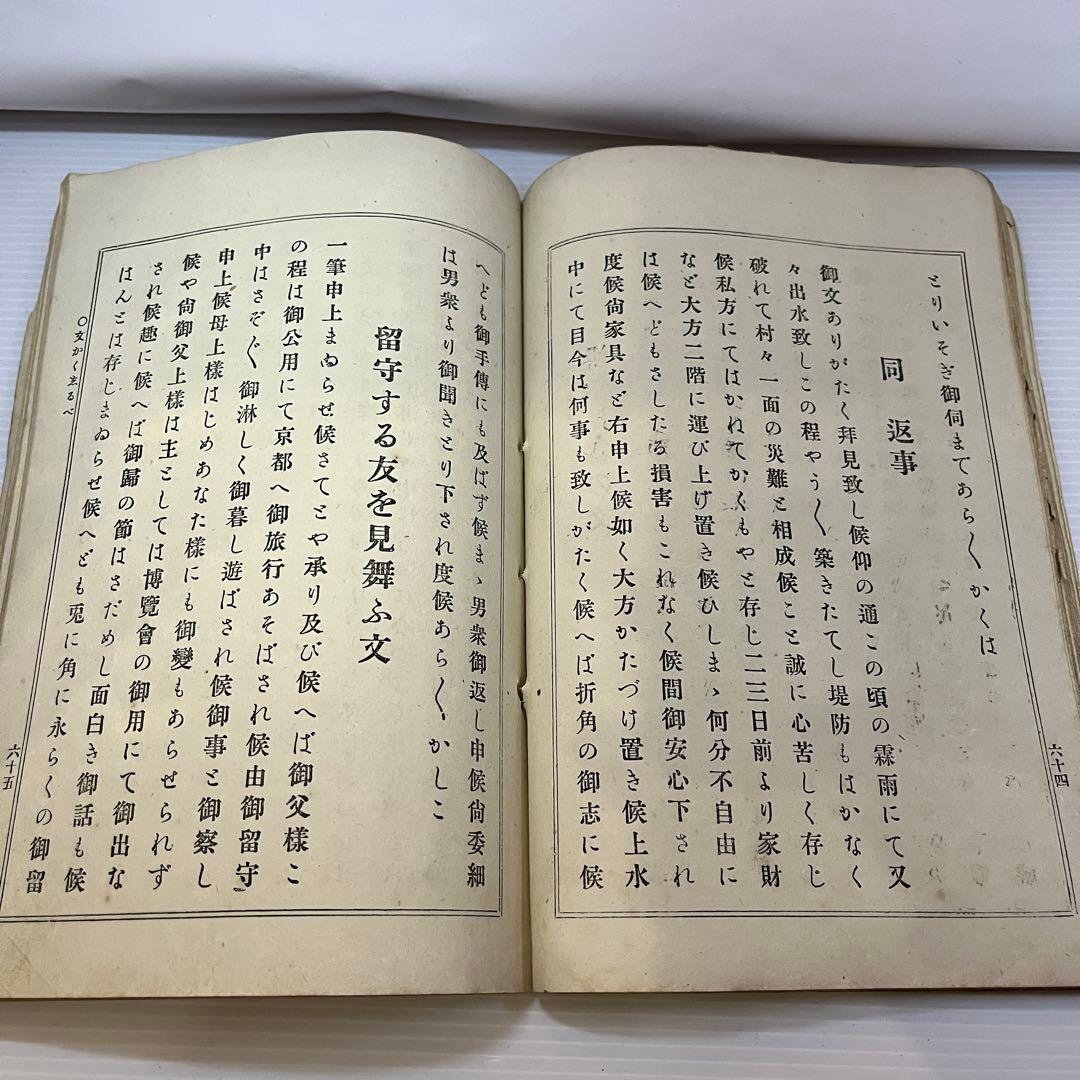 とりいそぎ御伺まであら〱かくは
同 返事
御文ありがたく拜見致し候仰の通この頃の霖雨にて又
々出水致しこの程やう〱築きたてし堤防もはかなく
破れて村々一面の災難と相成候こと誠に心苦しく存じ
候私方にてはかねてかくもやと存じ二三日前より家財
など大方二階に運び上げ置き候ひしまゝ何分不自由に
は候へどもさしたる損害もこれなく候間御安心下され
度候尙家具など右申上候如く大方かたづけ置き候上水
中にて目今は何事も致しがたく候へば折角の御志に候
六十四
へども御手傳にも及ばず候まゝ男衆御返し申候尙委細
は男衆より御聞きとり下され度候あら〱かしこ
留守する友を見舞ふ文
一筆申上まゐらせ候さてとや承り及び候へば御父樣こ
の程は御公用にて京都へ御旅行あそばされ候由御留守
中はさぞ〲御淋しく御暮し遊ばされ候御事と御察し
申上候母上樣はじめあなた樣にも御變もあらせられず
候や尙御父上樣は主としては博覽會の御用にて御出な
され候趣に候へば御歸の節はさだめし面白き御話も候
はんとは存じまゐらせ候へども兎に角に永らくの御留
〇文かくゑるべ
六十五